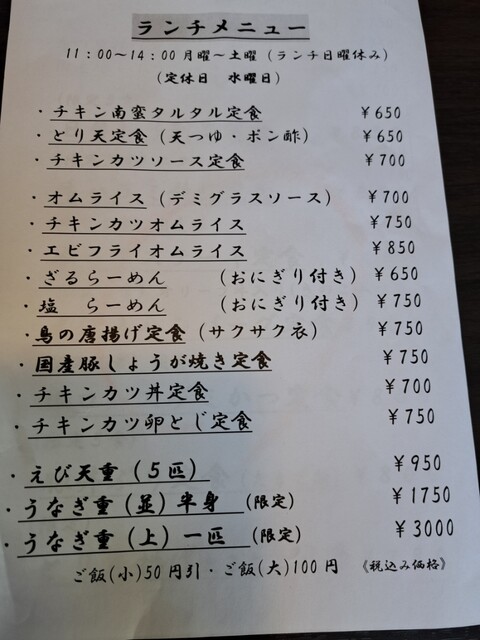 ランチメニュー
11：00～14：00 月曜～土曜（ランチ日曜休み）
（定休日　水曜日）
・チキン南蛮タルタル定食 ￥650
・とり天定食（天つゆ・ポン酢） ￥650
・チキンカツソース定食 ￥700
・オムライス（デミグラスソース） ￥700
・チキンカツオムライス ￥750
・エビフライオムライス ￥850
・ざるらーめん （おにぎり付き） ￥650
・塩　らーめん （おにぎり付き） ￥750
・鳥の唐揚げ定食（サクサク衣） ￥750
・国産豚しょうが焼き定食 ￥750
・チキンカツ丼定食 ￥700
・チキンカツ卵とじ定食 ￥750
・えび天重（５匹） ￥950
・うなぎ重（並）半身　（限定） ￥1750
・うなぎ重（上）一匹　（限定） ￥3000
ご飯(小)50円引・ご飯(大)100円　《税込み価格》